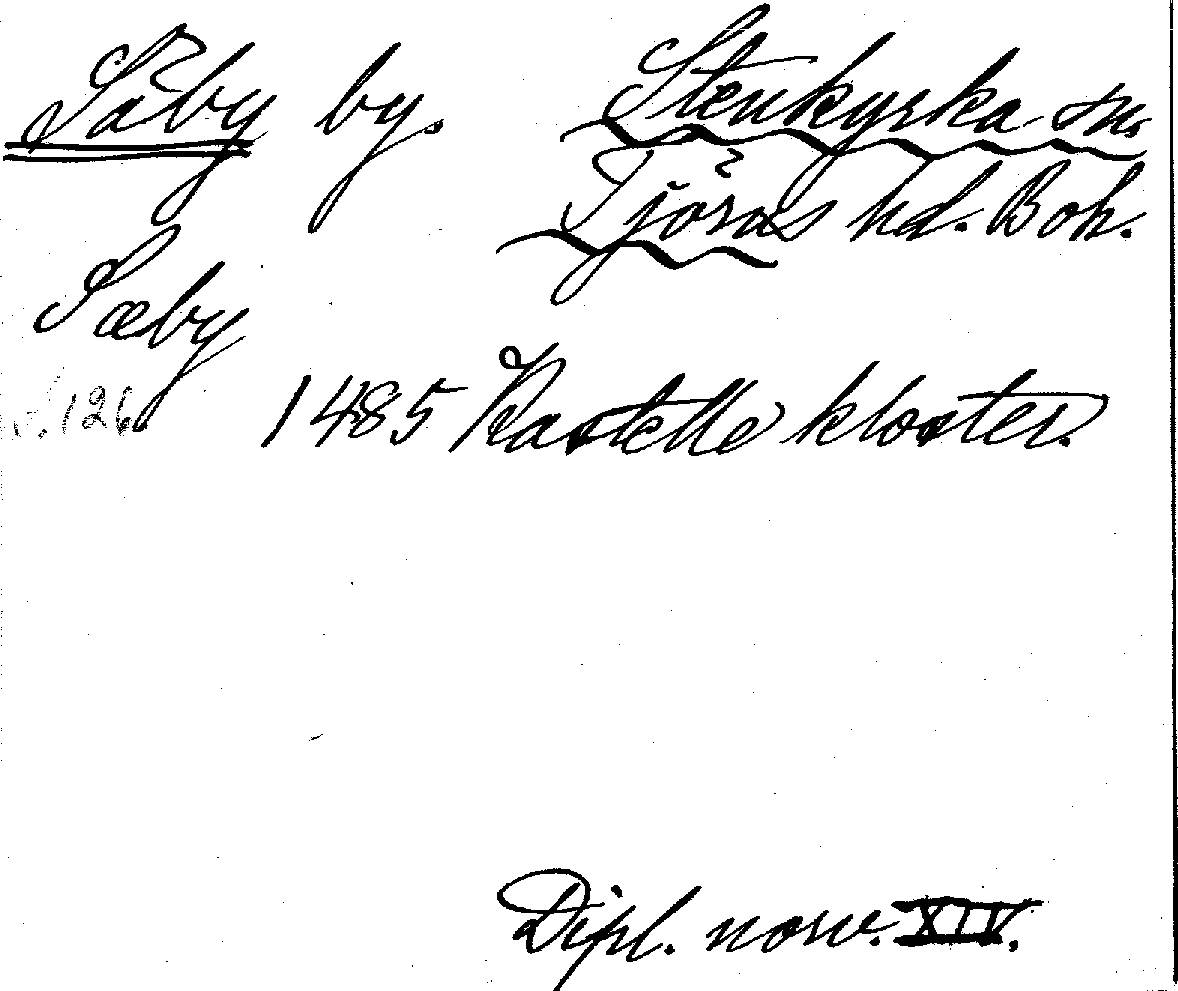 Säby by. Stenkyrka sn.
Tjörns hd. Boh.
Sæby
s. 126 1485 Kastelle kloster.
Dipl. norv. XIV.